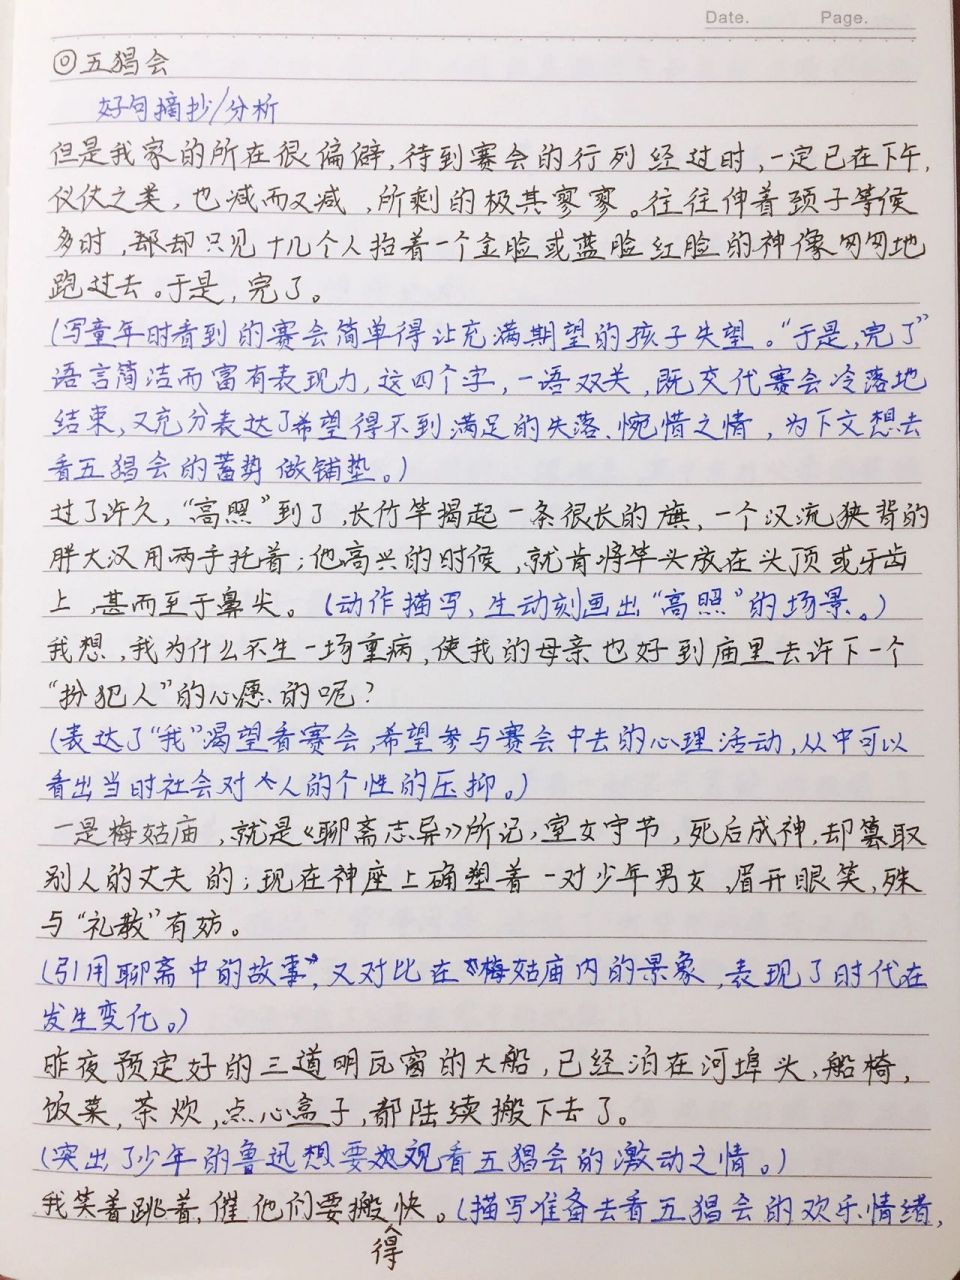 Date. Page.
◎五猖会
好句摘抄/分析
但是我家的所在很偏僻,待到赛会的行列经过时,一定已在下午,
仪仗之类,也减而又减,所剩的极其寥寥。往往伸着颈子等候
多时,却只见十几个人抬着一个金脸或蓝脸红脸的神像匆匆地
跑过去。于是,完了。
(写童年时看到的赛会简单得让充满期望的孩子失望。“于是,完了”
语言简洁而富有表现力,这四个字,一语双关,既交代赛会冷落地
结束,又充分表达了希望得不到满足的失落、惋惜之情,为下文想去
看五猖会的蓄势做铺垫。)
过了许久,“高照”到了,长竹竿揭起一条很长的旗,一个汗流狭背的
胖大汉用两手托着;他高兴的时候,就肯将竿头放在头顶或牙齿
上,甚而至于鼻尖。(动作描写,生动刻画出“高照”的场景。)
我想,我为什么不生一场重病,使我的母亲也好到庙里去许下一个
“扮犯人”的心愿的呢?
(表达了“我”渴望看赛会,希望参与赛会中去的心理活动,从中可以
看出当时社会对人的个性的压抑。)
一是梅姑庙,就是《聊斋志异》所记,室女守节,死后成神,却篡取
别人的丈夫的;现在神座上确塑着一对少年男女,眉开眼笑,殊
与“礼教”有妨。
(引用聊斋中的故事,又对比在梅姑庙内的景象,表现了时代在
发生变化。)
昨夜预定好的三道明瓦窗的大船,已经泊在河埠头,船椅,
饭菜,茶炊,点心盒子,都陆续搬下去了。
(突出了少年的鲁迅想要观看五猖会的激动之情。)
我笑着跳着,催他们要搬得快。(描写准备去看五猖会的欢乐情绪,